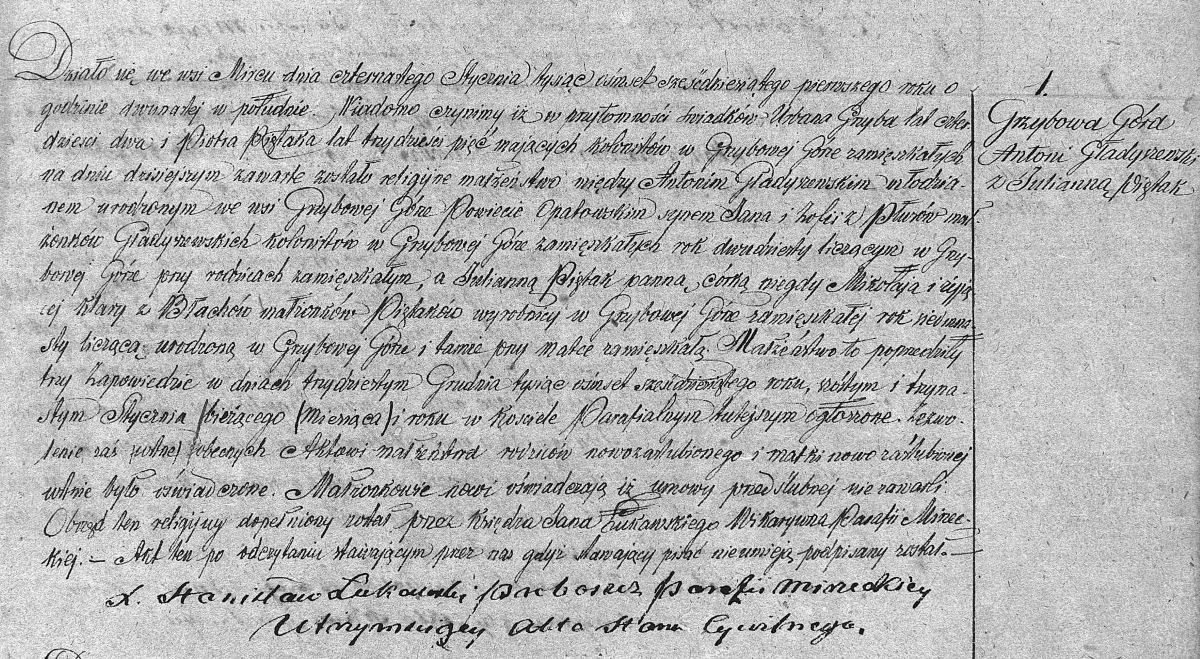 Działo się we wsi Mircu dnia czternastego Stycznia tysiąc ośmset sześćdziesiątego pierwszego roku o
godzinie dwunastej w południe. Wiadomo czyniemy iż w przytomności świadków Urbana Gryba lat czter
dzieści dwa i Piotra Piętaka lat trzydzieści pięć mających kolonistów w Grzybowej Górze zamięszkałych
na dniu dzisiejszym zawarte zostało religijne małżeństwo między Antonim Gładyszewskim młodzia-
nem urodzonym we wsi Grzybowej Górze Powiecie Opatowskim synem Jana i Zofii z Płusów mał
żonków Gładyszewskich kolonistów w Grzybowej Górze zamięszkałych rok dwudziesty liczącym w Grzy-
bowej Górze przy rodzicach zamięszkałym, a Julianną Piętak panną, córką niegdy Mikołaja i żyją
cej Klary z Błachów małżonków Piętaków wyrobnicy w Grzybowej Górze zamięszkałej rok siedmna-
sty liczącą urodzoną w Grzybowej Górze i tamże przy matce zamięszkałą. Małżeństwo to poprzedziły
trzy zapowiedzie w dniach trzydziestym Grudnia tysiąc ośmset sześćdziesiątego roku, szóstym i trzyna-
stym Stycznia bieżącego (miesiąca) i roku w Kościele Parafialnym tutejszym ogłoszone. Zezwo-
lenie zaś ustne obecnych Aktowi małżeństwa rodziców nowozaślubionego i matki nowo zaślubionej
ustnie było oświadczone. Małżonkowie nowi oświadczają iż umowy przedślubnej nie zawarli.
Obrzęd ten religijny dopełniony został przez Księdza Jana Żuławskiego Wikaryusza Parafii Mirec-
kiej. — Akt ten po odczytaniu stawającym przez nas gdyż stawający pisać nie umieją podpisany został. —
X. Stanisław Lukowski Proboszcz Parafii Mireckiey
Utrzymuiący Akta Stanu Cywilnego.
1.
Grzybowa Góra
Antoni Gładyszewski
z Julianną Piętak